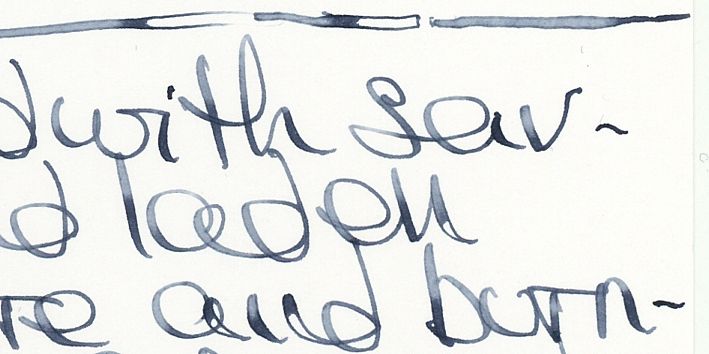 d with sav-
d laden
re and burn-